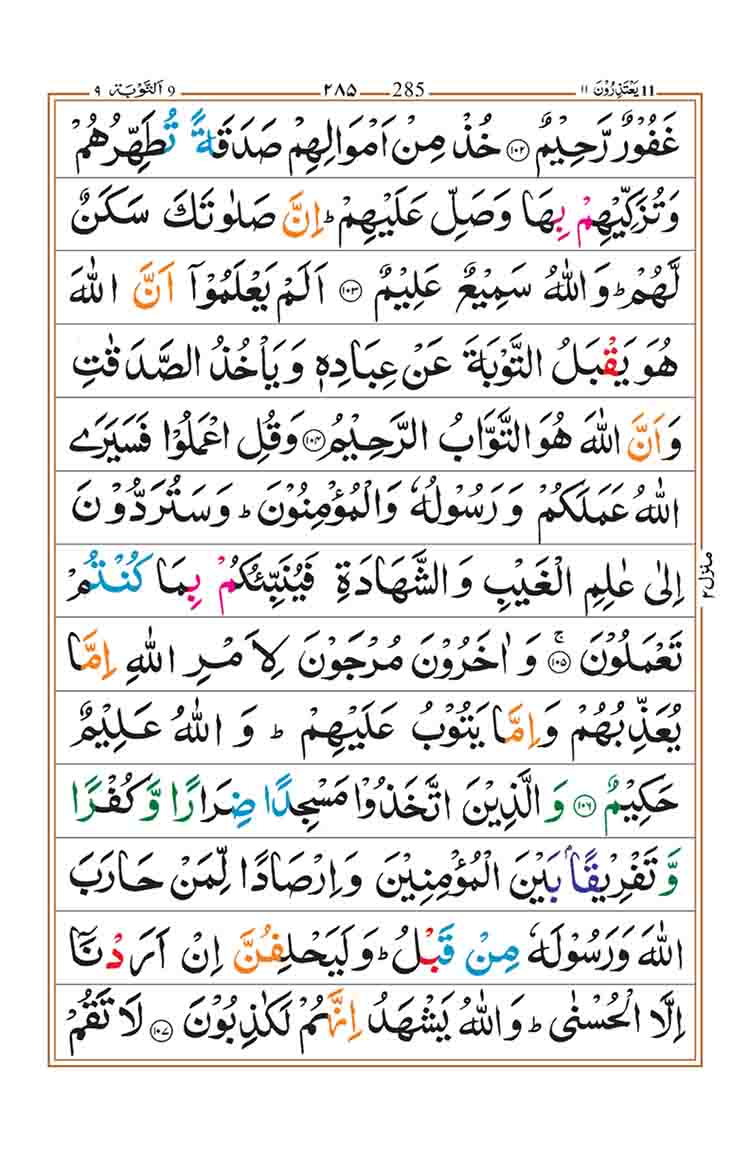 ٩ اَلتَّوْبَة 9 ٢٨٥ 285 يَعْتَذِرُوْنَ ١١ 11
غَفُوْرٌ رَّحِيْمٌ ۝١٠٢ خُذْ مِنْ اَمْوَالِهِمْ صَدَقَةً تُطَهِّرُهُمْ
وَتُزَكِّيْهِمْ بِهَا وَصَلِّ عَلَيْهِمْ ؕ اِنَّ صَلٰوتَكَ سَكَنٌ
لَّهُمْ ؕ وَاللّٰهُ سَمِيْعٌ عَلِيْمٌ ۝١٠٣ اَلَمْ يَعْلَمُوْۤا اَنَّ اللّٰهَ
هُوَ يَقْبَلُ التَّوْبَةَ عَنْ عِبَادِهٖ وَيَاْخُذُ الصَّدَقٰتِ
وَاَنَّ اللّٰهَ هُوَ التَّوَّابُ الرَّحِيْمُ ۝١٠٤ وَقُلِ اعْمَلُوْا فَسَيَرَى
اللّٰهُ عَمَلَكُمْ وَرَسُوْلُهٗ وَالْمُؤْمِنُوْنَ ؕ وَسَتُرَدُّوْنَ
اِلٰى عٰلِمِ الْغَيْبِ وَالشَّهَادَةِ فَيُنَبِّئُكُمْ بِمَا كُنْتُمْ
تَعْمَلُوْنَ ۚ۝١٠٥ وَاٰخَرُوْنَ مُرْجَوْنَ لِاَمْرِ اللّٰهِ اِمَّا
يُعَذِّبُهُمْ وَاِمَّا يَتُوْبُ عَلَيْهِمْ ؕ وَاللّٰهُ عَلِيْمٌ
حَكِيْمٌ ۝١٠٦ وَالَّذِيْنَ اتَّخَذُوْا مَسْجِدًا ضِرَارًا وَّكُفْرًا
وَّتَفْرِيْقًۢا بَيْنَ الْمُؤْمِنِيْنَ وَاِرْصَادًا لِّمَنْ حَارَبَ
اللّٰهَ وَرَسُوْلَهٗ مِنْ قَبْلُ ؕ وَلَيَحْلِفُنَّ اِنْ اَرَدْنَاۤ
اِلَّا الْحُسْنٰى ؕ وَاللّٰهُ يَشْهَدُ اِنَّهُمْ لَكٰذِبُوْنَ ۝١٠٧ لَا تَقُمْ
منزل ٢